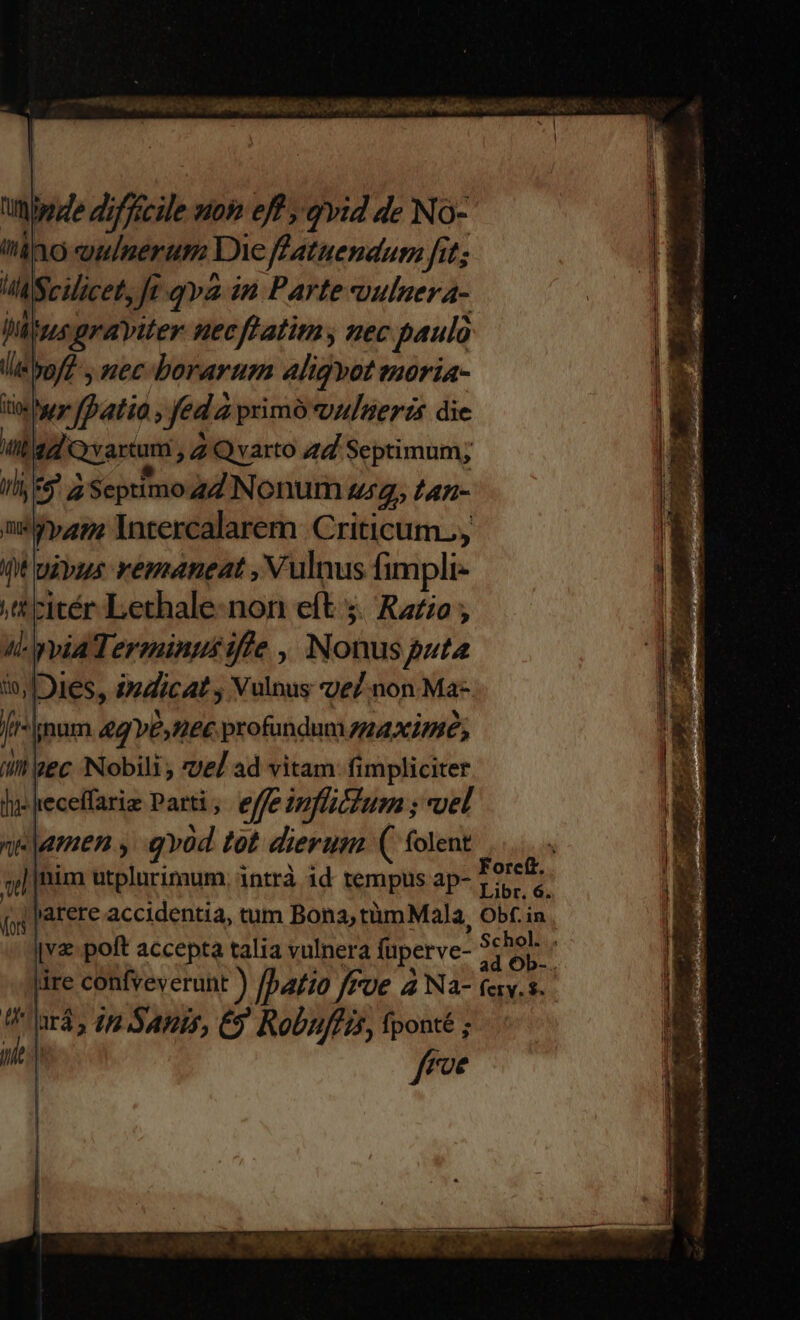 inde difficile non eſt, qvid de No-
no vulnerum Die ſtatuendum ſit;
Scilicet, ſi qvà in Parte vulnera-
tus graviter nec ſtatim, nec paulò
poſt, nec horarum aliqvot moria-
tur ſpatio, ſed à primò vulneris die
ad Qvartum, à Qvarto ad Septimum,
& à Septimo ad Nonum usq, tan-
qvam Intercalarem Criticum,
vivus remaneat, Vulnus ſimpli-
citér Lethale non eſt; Ratio,
qvia Terminus iſte, Nonus puta
Dies, indicat, Vulnus vel non Ma-
gnum æqvè, nec profundum maximè,
nec Nobili, vel ad vitam ſimpliciter
neceſſariæ Parti, eſſe inflictum; vel
tamen, qvòd tot dierum (ſolent
enim utplurimum, intrà id tempus ap- Foreſt. Libr. 6.
parere accidentia, tum Bona, tùm Mala, Obſ. in
qvæ poſt accepta talia vulnera ſuperve- Schol. ad Ob-
nire conſveverunt) ſpatio ſive à Na- ſerv. 8.
turâ, in Sanis, & Robuſtis, ſponté;
ſive